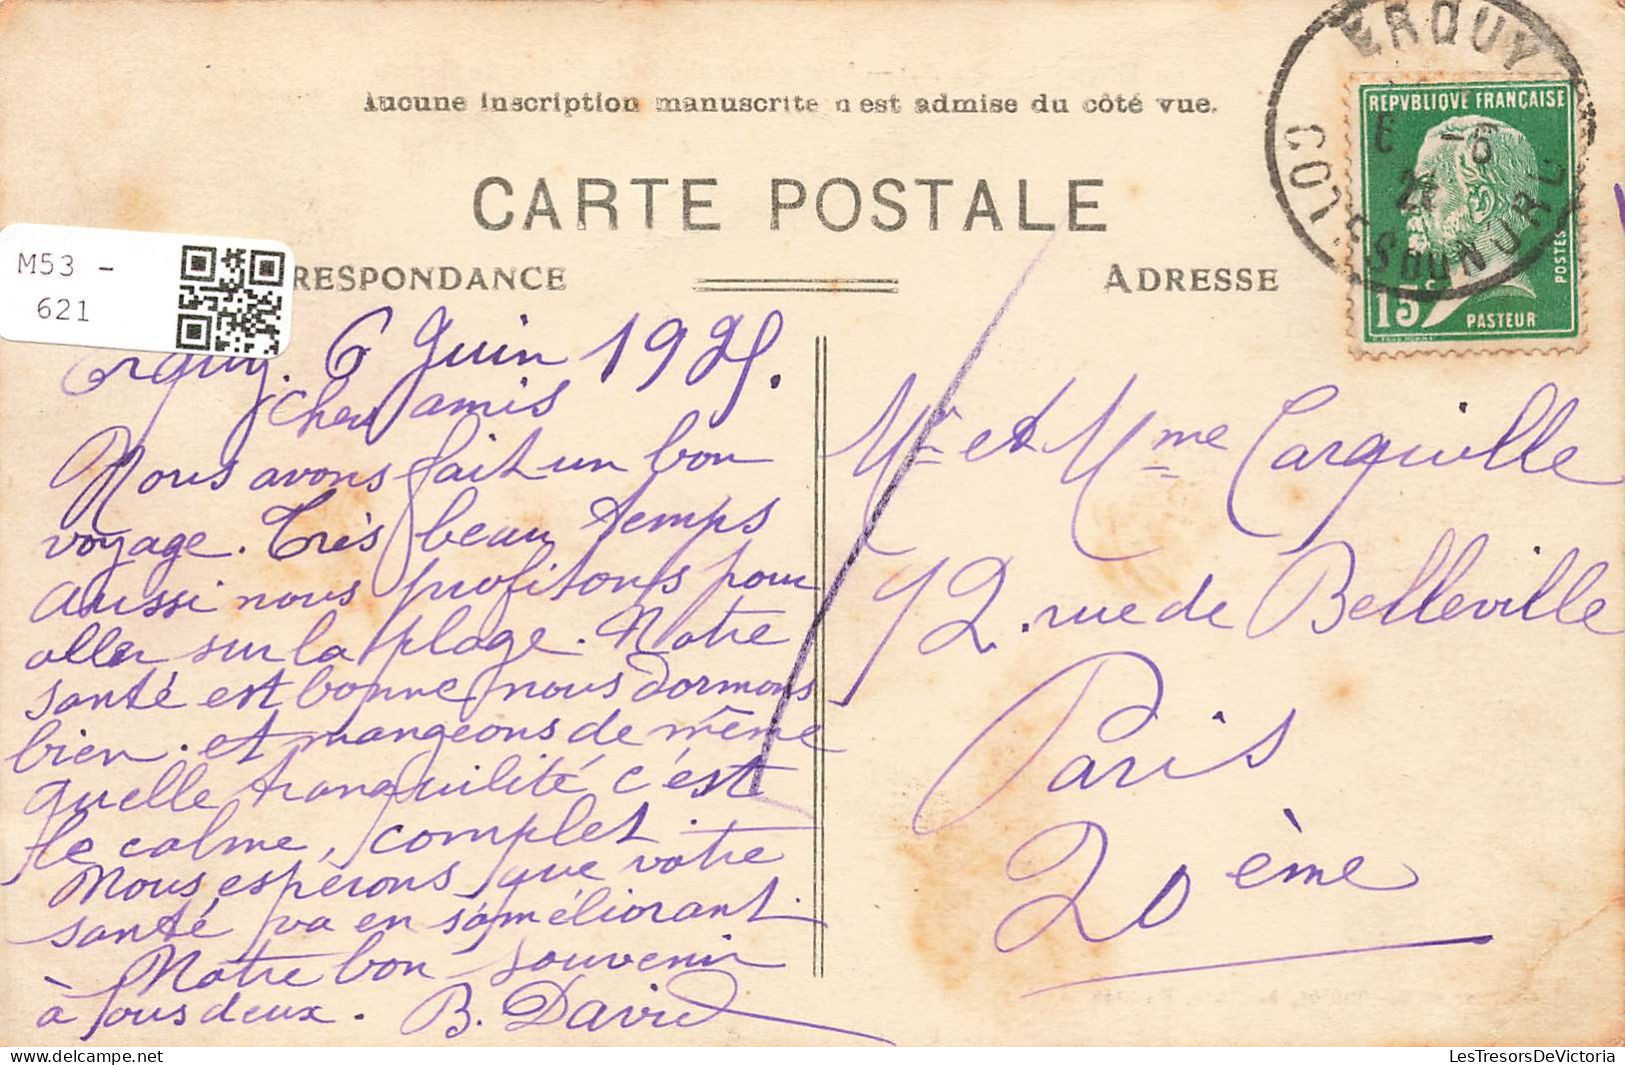 Aucune inscription manuscrite n'est admise du côté vue.
CARTE POSTALE
RESPONDANCE
ADRESSE
M53 -
621
ERQUY
COTES DU NORD
-6
REPVBLIQVE FRANÇAISE
POSTES
15c
PASTEUR
Erquy. 6 Juin 1925.
Chers amis
Nous avons fait un bon
voyage. Très beau temps
aussi nous profitons pour
aller sur la plage. Notre
santé est bonne nous dormons
bien. et mangeons de même
quelle tranquilité c'est
le calme, complet.
Nous espérons que votre
santé va en s'améliorant.
Notre bon souvenir
à tous deux. B. David
Mr et Mme Carquille
72. rue de Belleville
Paris
20ème
LesTresorsDeVictoria